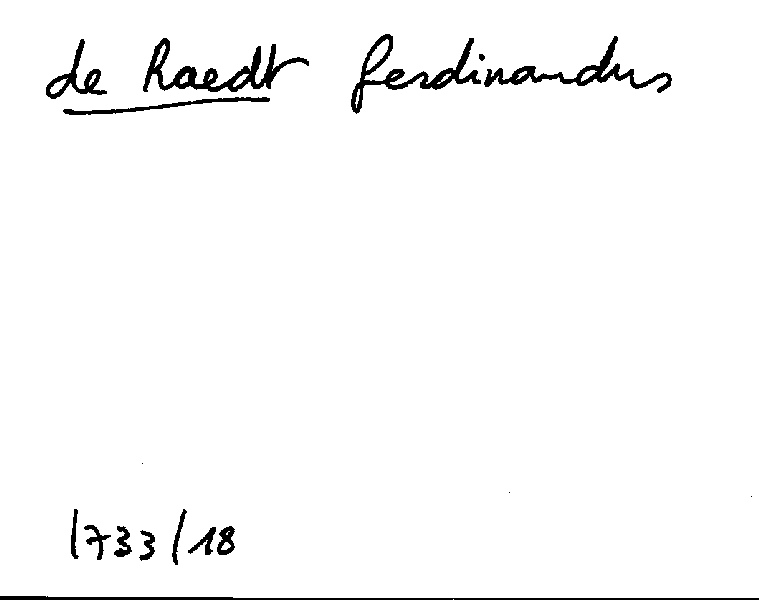 de Raedt Ferdinandus
1733/18